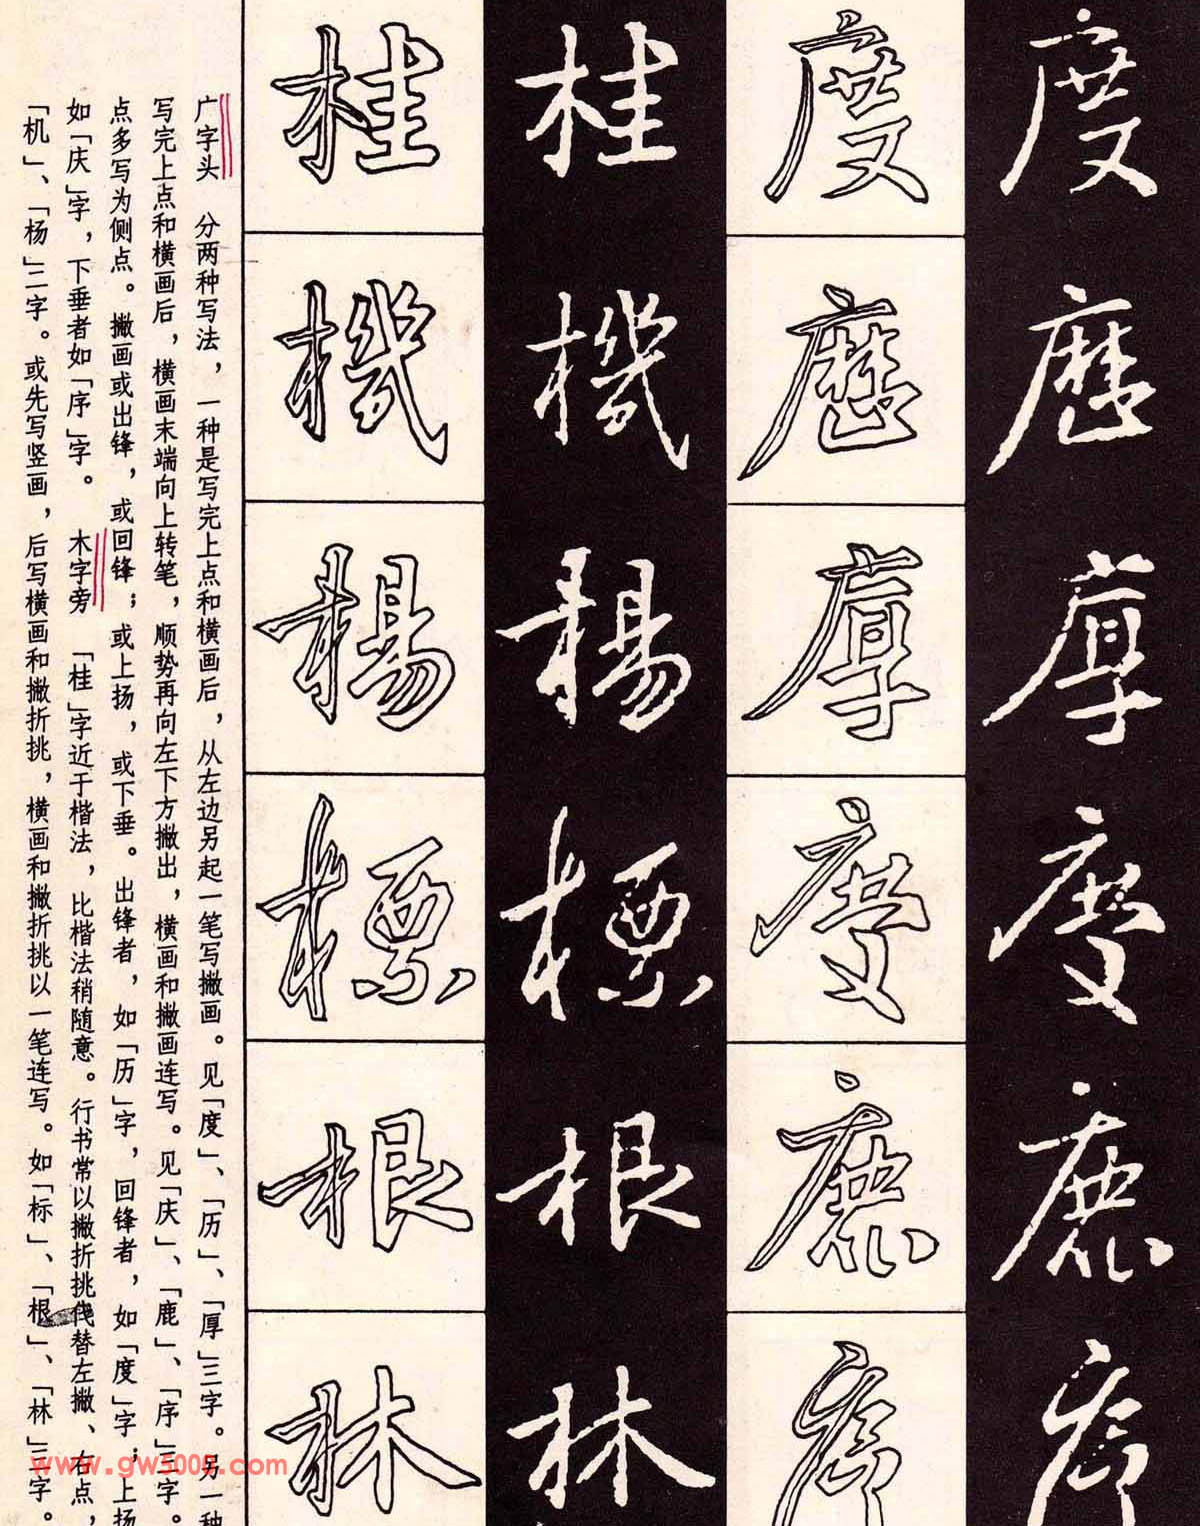 度歷厚慶鹿序
度歷厚慶鹿序
桂機楊標根林
桂機楊標根林
广字头 分两种写法，一种是写完上点和横画后，从左边另起一笔写撇画。见「度」、「历」、「厚」三字。另一种
写完上点和横画后，横画末端向上转笔，顺势再向左下方撇出，横画和撇画连写。见「庆」、「鹿」、「序」三字。
点多写为侧点。撇画或出锋，或回锋；或上扬，或下垂。出锋者，如「历」字，回锋者，如「度」字；上扬
如「庆」字，下垂者如「序」字。 木字旁 「桂」字近于楷法，比楷法稍随意。行书常以撇折挑代替左撇、右点，
「机」、「杨」二字。或先写竖画，后写横画和撇折挑，横画和撇折挑以一笔连写。如「标」、「根」、「林」三字。